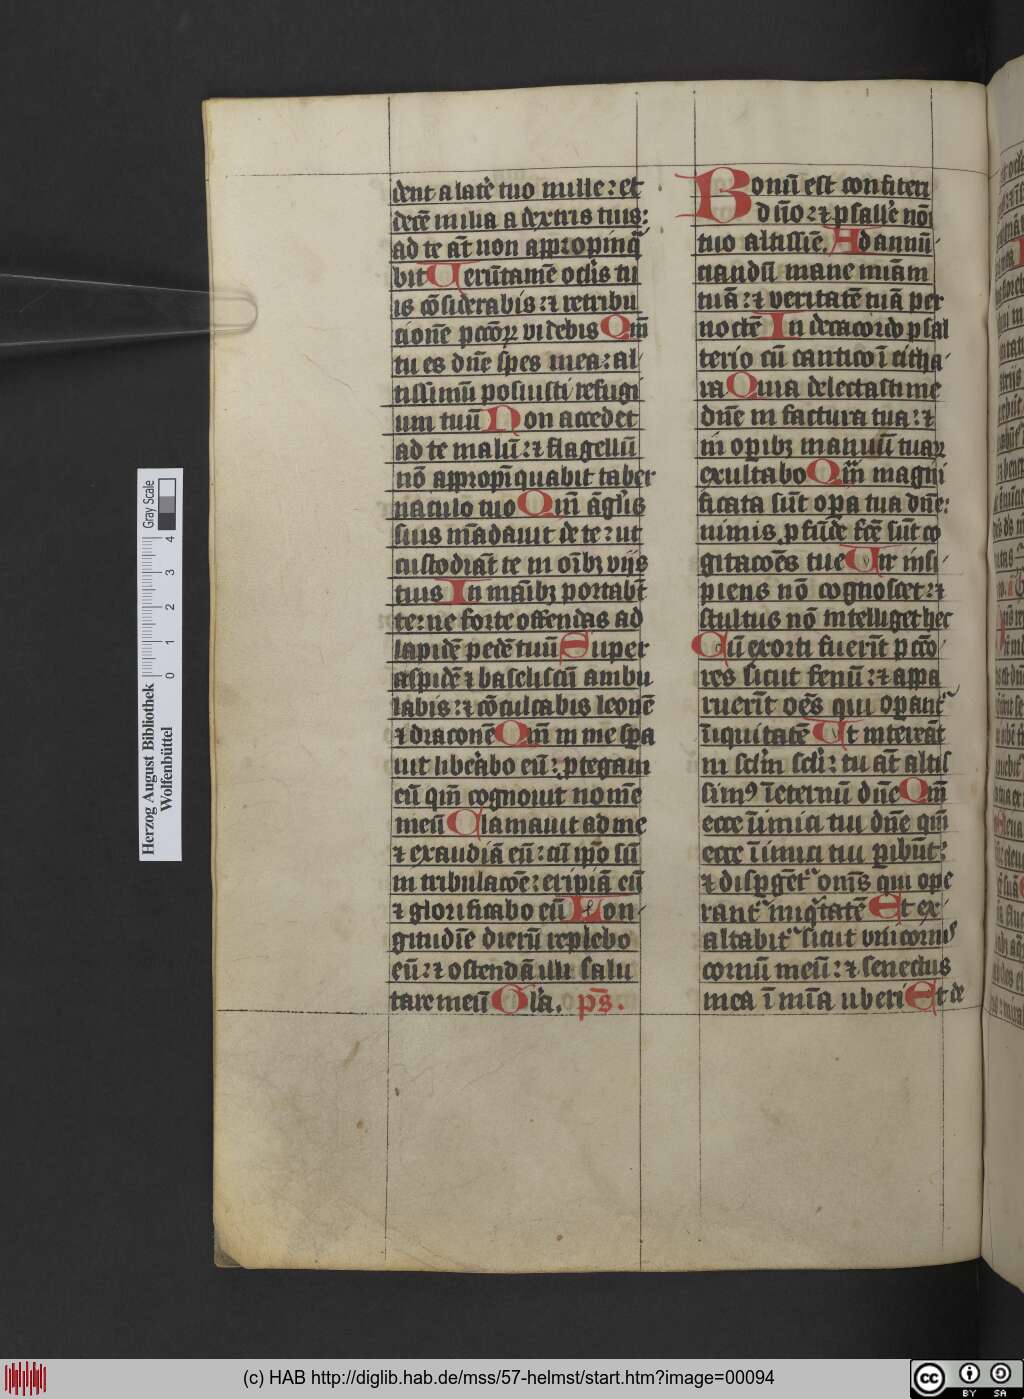 dent a late᷒ tuo mille : et
decē milia a dextris tuis :
ad te aūt non appropinq̄
bit Uerūtamē oclis tu
is cōsiderabis : ⁊ retribu
cionē pccōꝝ videbis Qm̄
tu es dn̄e spes mea : al
tissimū posuisti refugi
um tuū Non accedet
ad te malū : ⁊ flagellū
nō appropīquabit taber
naculo tuo Qm̄ āglis
suis mādauit de te : ut
custodiāt te in oībꝫ vijs
tuis In maībꝫ portabūt
te : ne forte offendas ad
lapidē pedē tuū Super
aspidē ⁊ basiliscū ambu
labis : ⁊ cōculcabis leonē
⁊ draconē Qm̄ in me spa
uit liberabo eū : ꝓtegam
eū qm̄ cognouit nomē
meū Clamauit ad me
⁊ exaudiā eū : cū ipō sū
in tribulacōe : eripiā eū
⁊ glorificabo eū Lon
gitudīe dierū replebo
eū : ⁊ ostendā illi salu
tare meū Gl'a . ps̄ .
Bonū est confiteri
dn̄o : ⁊ psalle᷒ nōi
tuo altissīe . Ad annū
ciandū mane mīam
tuā : ⁊ veritatē tuā per
noctē In decacordo psal
terio cū cantico ī citha
ra Quia delectasti me
dn̄e in factura tua : ⁊
in opibꝫ manuū tuaꝝ
exultabo Qm̄ magni
ficata sūt opa tua dn̄e :
nimis ꝓfūde fcē sūt co
gitacōes tue Uir insi
piens nō cognoscet : ⁊
stultus nō intelliget hec
Cū exorti fuerīt pccō
res sicut fenū : ⁊ appa
ruerīt oēs qui opant᷑
īiquitatē Ut intereāt
in sclm̄ scli : tu aūt altis
simꝰ ī eternū dn̄e Qm̄
ecce inimici tui dn̄e qm̄
ecce inimici tui ꝑibūt :
⁊ dispgēt᷑ omīs qui ope
rant᷑ iniqͥtatē Et ex
altabit᷑ sicut vnicornis
cornū meū : ⁊ senectus
mea ī mīa uberi Et de
Herzog August Bibliothek
Wolfenbüttel
0 1 2 3 4
Gray Scale
(c) HAB http://diglib.hab.de/mss/57-helmst/start.htm?image=00094
cc BY SA